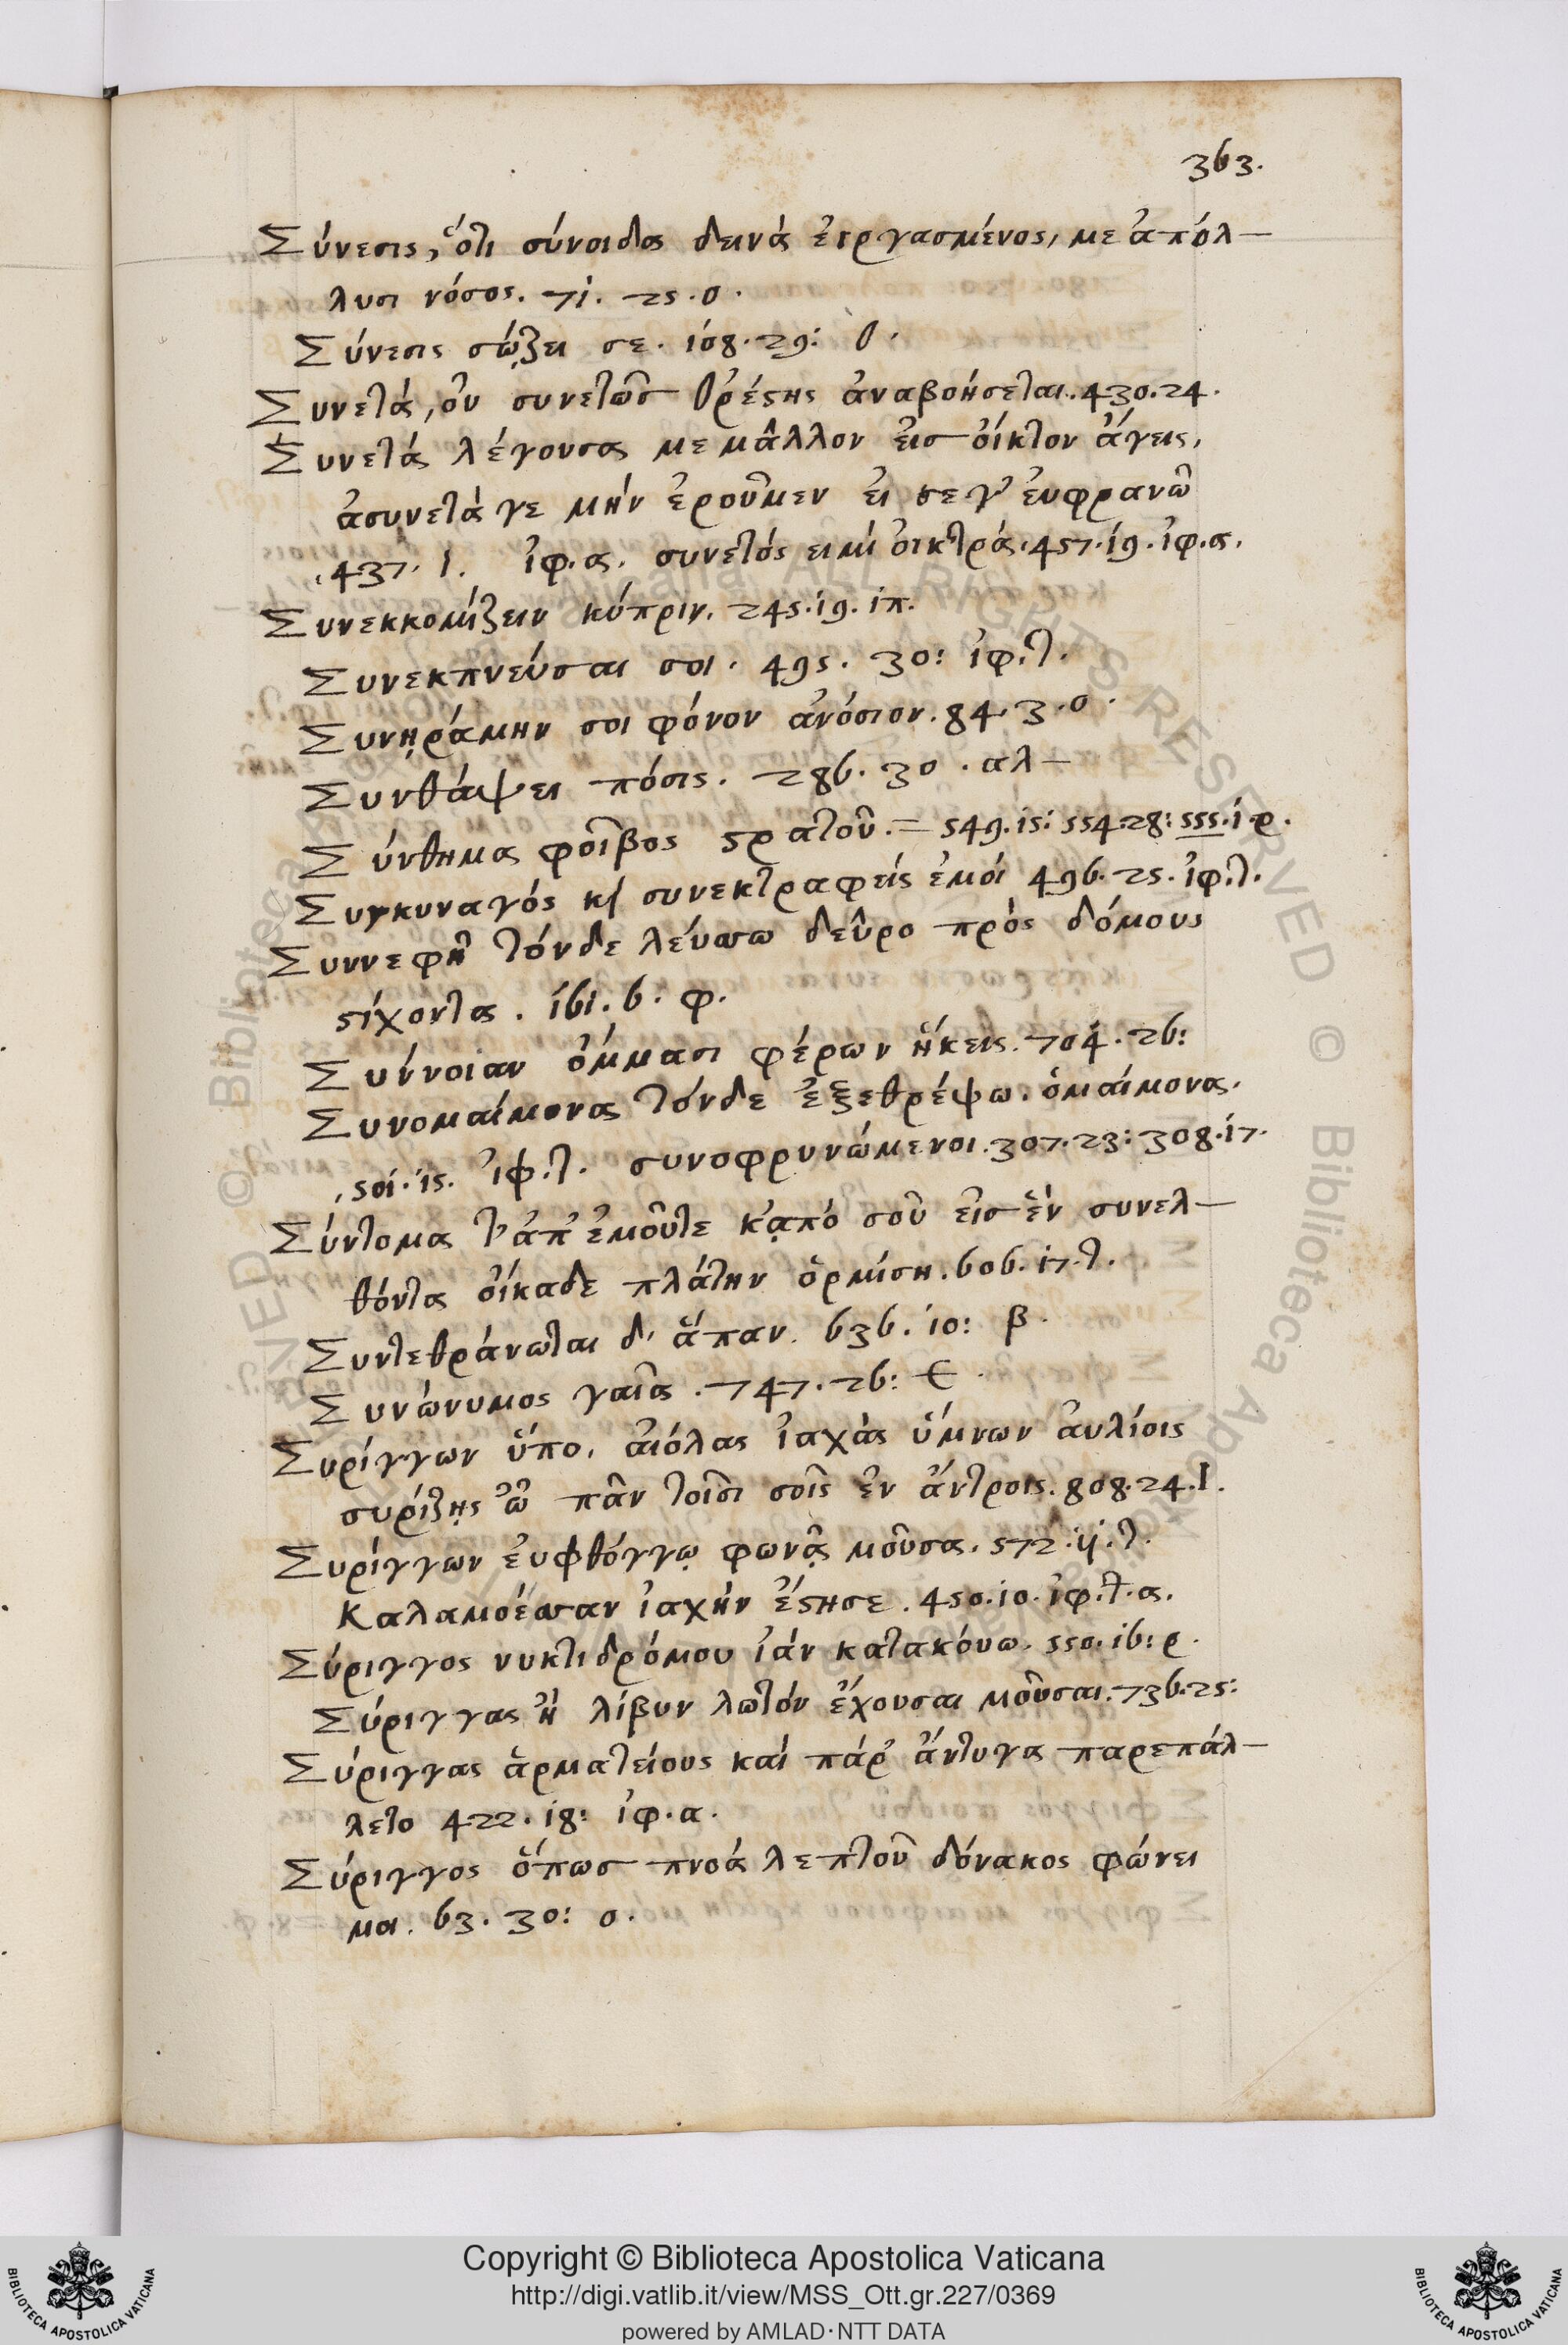 363.
Σύνεσις, ὅτι σύνοιδα δεινά ἐιργασμένος, με ἀπόλ-
λυσι νόσος. 71. 25. ο.
Σύνεσις σώζει σε. 108. 29: ο.
Συνετά, οὐ συνετῶσ θρέστης ἀναβοήσεται. 430. 24.
Συνετά λέγουσα με μᾶλλον ἐισ ὀίκτον ἄγεις,
ἀσυνετά γε μήν ἐροῦμεν ἐι σε γ' ἐυφρανῶ
,437. 1. ἰφ. α. συνετός ειμί ὀικτρά. 457. 19. ἰφ. α.
Συνεκκομίζειν κύπριν. 245. 19. ἱπ.
Συνεκπνεύσαι σοι. 495. 30: ἰφ. τ.
Συνῃράμην σοι φόνον ἀνόσιον. 84. 3. ο.
Συνθάψει πόσις. 286. 30. αλ-
Σύνθημα φοῖβος στρατοῦ. = 549. 15: 554. 28: 555. 1. ρ.
Συγκυναγός κ συνεκτραφείς ἐμοί 496. 25. ἰφ. τ.
Συννεφῆ τόνδε λεύσσω δεῦρο πρός δόμους
στίχοντα. 161. 6. φ.
Σύννοιαν ὄμμασι φέρων ἥκεις. 704. 26:
Συνομαίμονα τόνδε ἐξεθρέψω. ὁμαίμονα.
,501. 15. ἰφ. τ. συνοφρυνώμενοι. 307. 23: 308. 17.
Σύντομα τ' ἀπ' ἐμοῦτε κᾀπό σοῦ εἰσ ἕν συνελ-
θόντα ὀίκαδε πλάτην ὁρμίση. 606. 17. τ.
Συντεθράνωται δ' ἅπαν. 636. 10: β.
Συνώνυμος γαῖα. 747. 26: ε.
Συρίγγων ὕπο, αἰόλας ἰαχάς ὕμνων ἀυλίοις
συρίζῃς ὦ πᾶν τοῖσι σοῖς ἐν ἄντροις. 808. 24. Ι.
Συρίγγων ἐυφθόγγῳ φωνᾷ μοῦσα. 572. 11. τ.
Καλαμοέσσαν ἰαχήν ἔστησε. 450. 10. ἰφ. τ. α.
Σύριγγος νυκτιδρόμου ἰάν κατακόυω. 550. 16: ρ.
Σύριγγας ἤ λίβυν λωτόν ἔχουσαι μοῦσαι. 736. 25:
Σύριγγας ἁρματείους καί πάρ' ἄντυγα παρεπάλ-
λετο 422. 18: ἰφ. α.
Σύριγγος ὅπωσ πνοά λεπτοῦ δόνακος φώνει
μοι. 63. 30: ο.
Copyright © Biblioteca Apostolica Vaticana
http://digi.vatlib.it/view/MSS_Ott.gr.227/0369
powered by AMLAD·NTT DATA